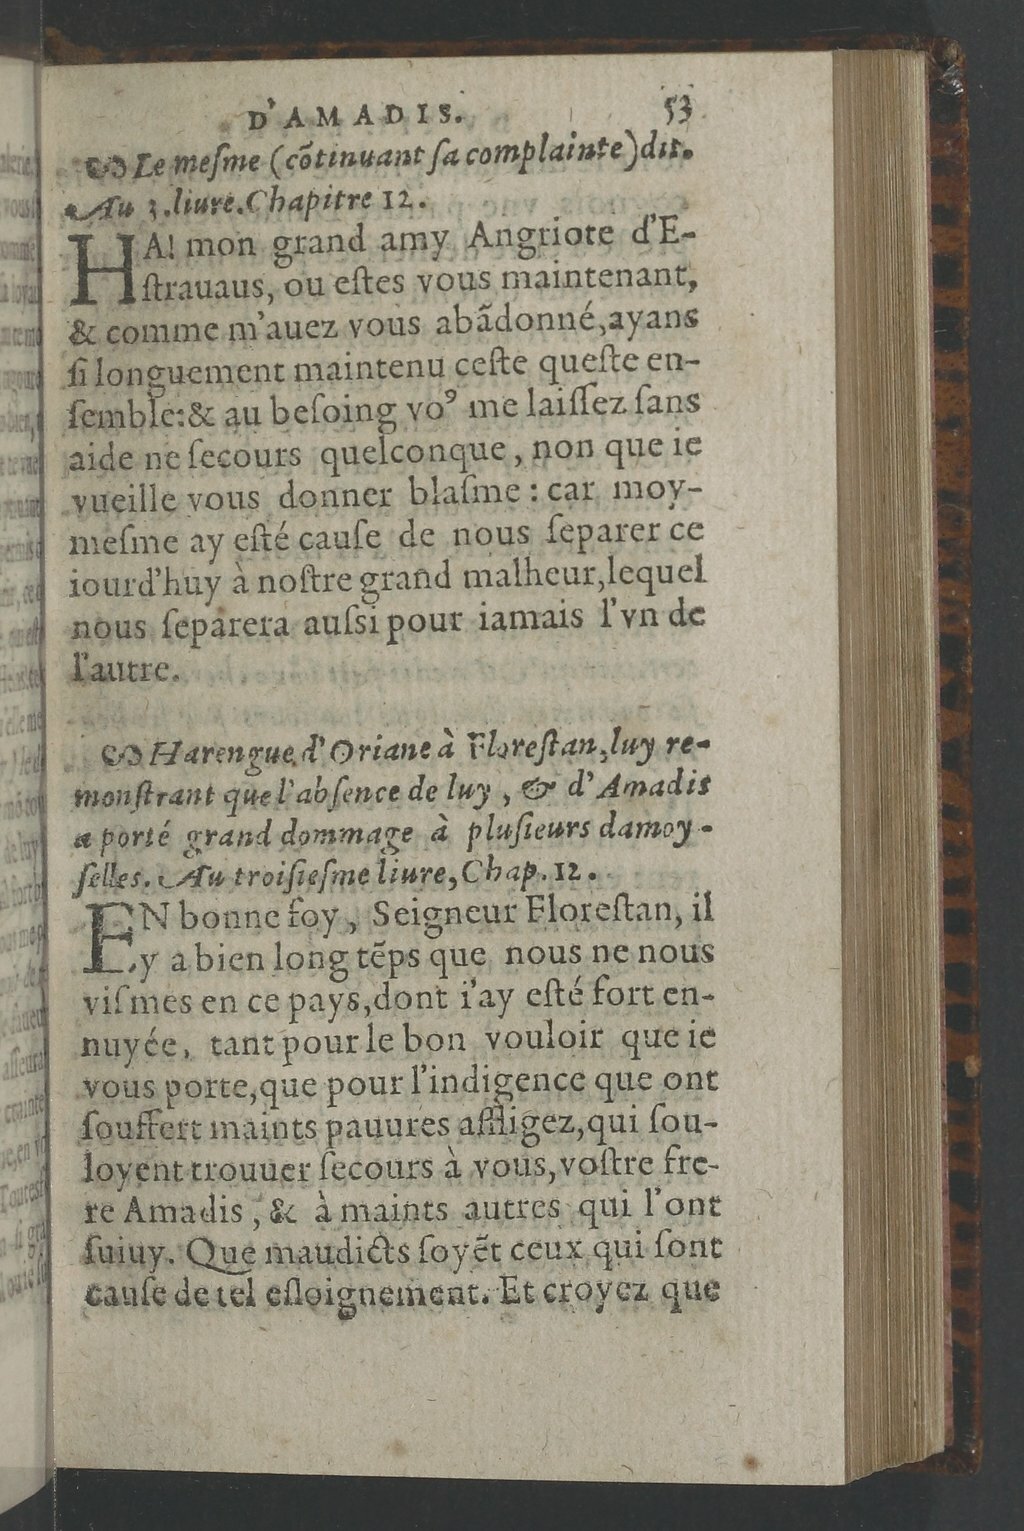 D'AMADIS. 53
Le meſme (cõtinuant ſa complainte) dit.
Au 3. liure. Chapitre 12.
HA! mon grand amy Angriote d'E-
ſtrauaus, ou eſtes vous maintenant,
& comme m'auez vous abãdonné, ayans
ſi longuement maintenu ceſte queſte en-
ſemble: & au beſoing voꝰ me laiſſez ſans
aide ne ſecours quelconque, non que ie
vueille vous donner blaſme: car moy-
meſme ay eſté cauſe de nous ſeparer ce
iourd'huy à noſtre grand malheur, lequel
nous ſeparera auſsi pour iamais l'vn de
l'autre.
Harengue d'Oriane à Floreſtan, luy re-
monſtrant que l'abſence de luy, & d'Amadis
a porté grand dommage à pluſieurs damoy-
ſelles. Au troiſieſme liure, Chap. 12.
EN bonne foy, Seigneur Floreſtan, il
y a bien long tẽps que nous ne nous
viſmes en ce pays, dont i'ay eſté fort en-
nuyée, tant pour le bon vouloir que ie
vous porte, que pour l'indigence que ont
ſouffert maints pauures affligez, qui ſou-
loyent trouuer ſecours à vous, voſtre fre-
re Amadis, & à maints autres qui l'ont
ſuiuy. Que maudicts ſoyẽt ceux qui ſont
cauſe de tel eſloignement. Et croyez que